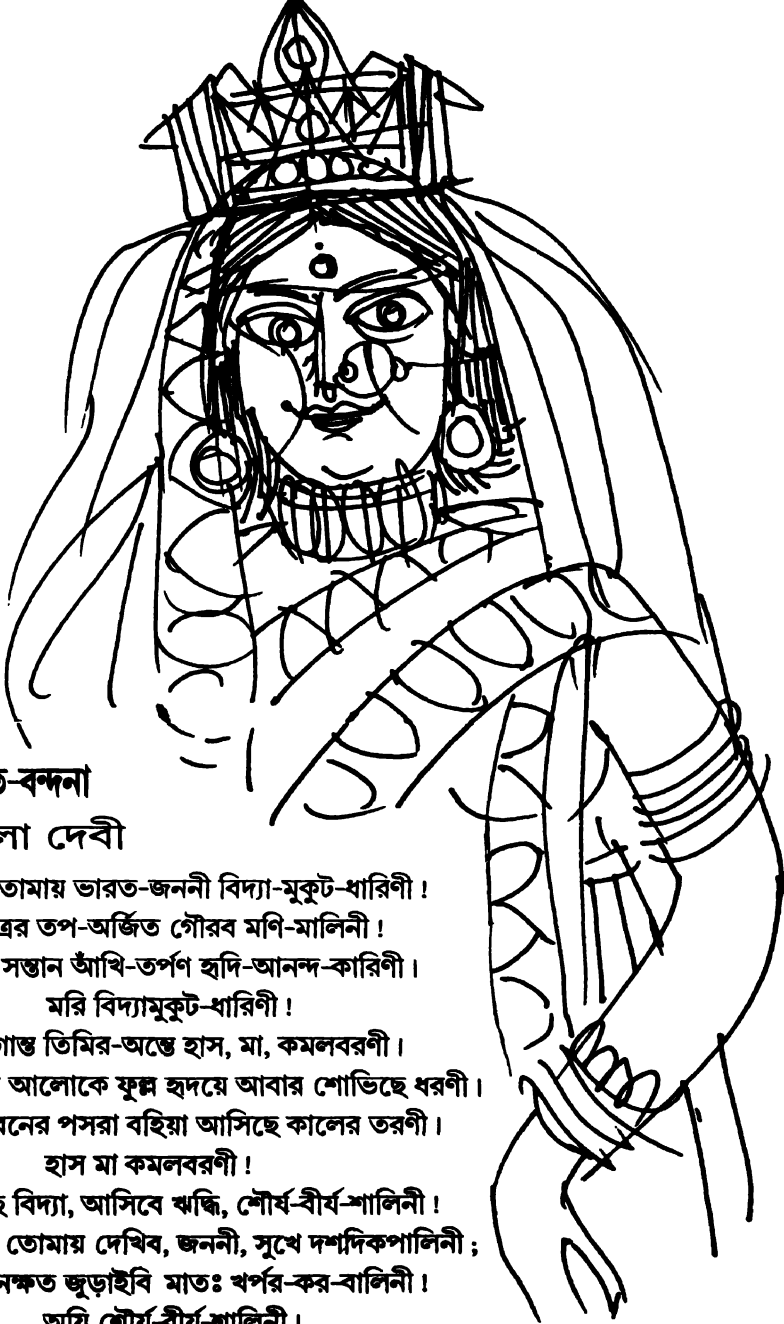 -বন্দনা
লা দেবী
তোমায় ভারত-জননী বিদ্যা-মুকুট-ধারিণী !
ত্রর তপ-অর্জিত গৌরব মণি-মালিনী !
সন্তান আঁখি-তর্পণ হৃদি-আনন্দ-কারিণী ।
মরি বিদ্যামুকুট-ধারিণী !
গান্ত তিমির-অন্তে হাস, মা, কমলবরণী ।
আলোকে ফুল্ল হৃদয়ে আবার শোভিছে ধরণী ।
বনের পসরা বহিয়া আসিছে কালের তরণী ।
হাস মা কমলবরণী !
বিদ্যা, আসিবে ঋদ্ধি, শৌর্য-বীর্য-শালিনী !
তোমায় দেখিব, জননী, সুখে দশদিকপালিনী ;
নক্ষত জুড়াইবি মাতঃ খর্পর-কর-বালিনী !
অয়ি শৌর্য-বীর্য-শালিনী ।